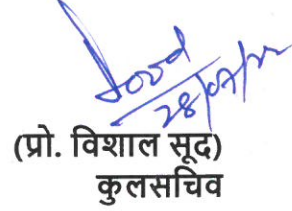 Sood
28/07/22
(प्रो. विशाल सूद)
कुलसचिव